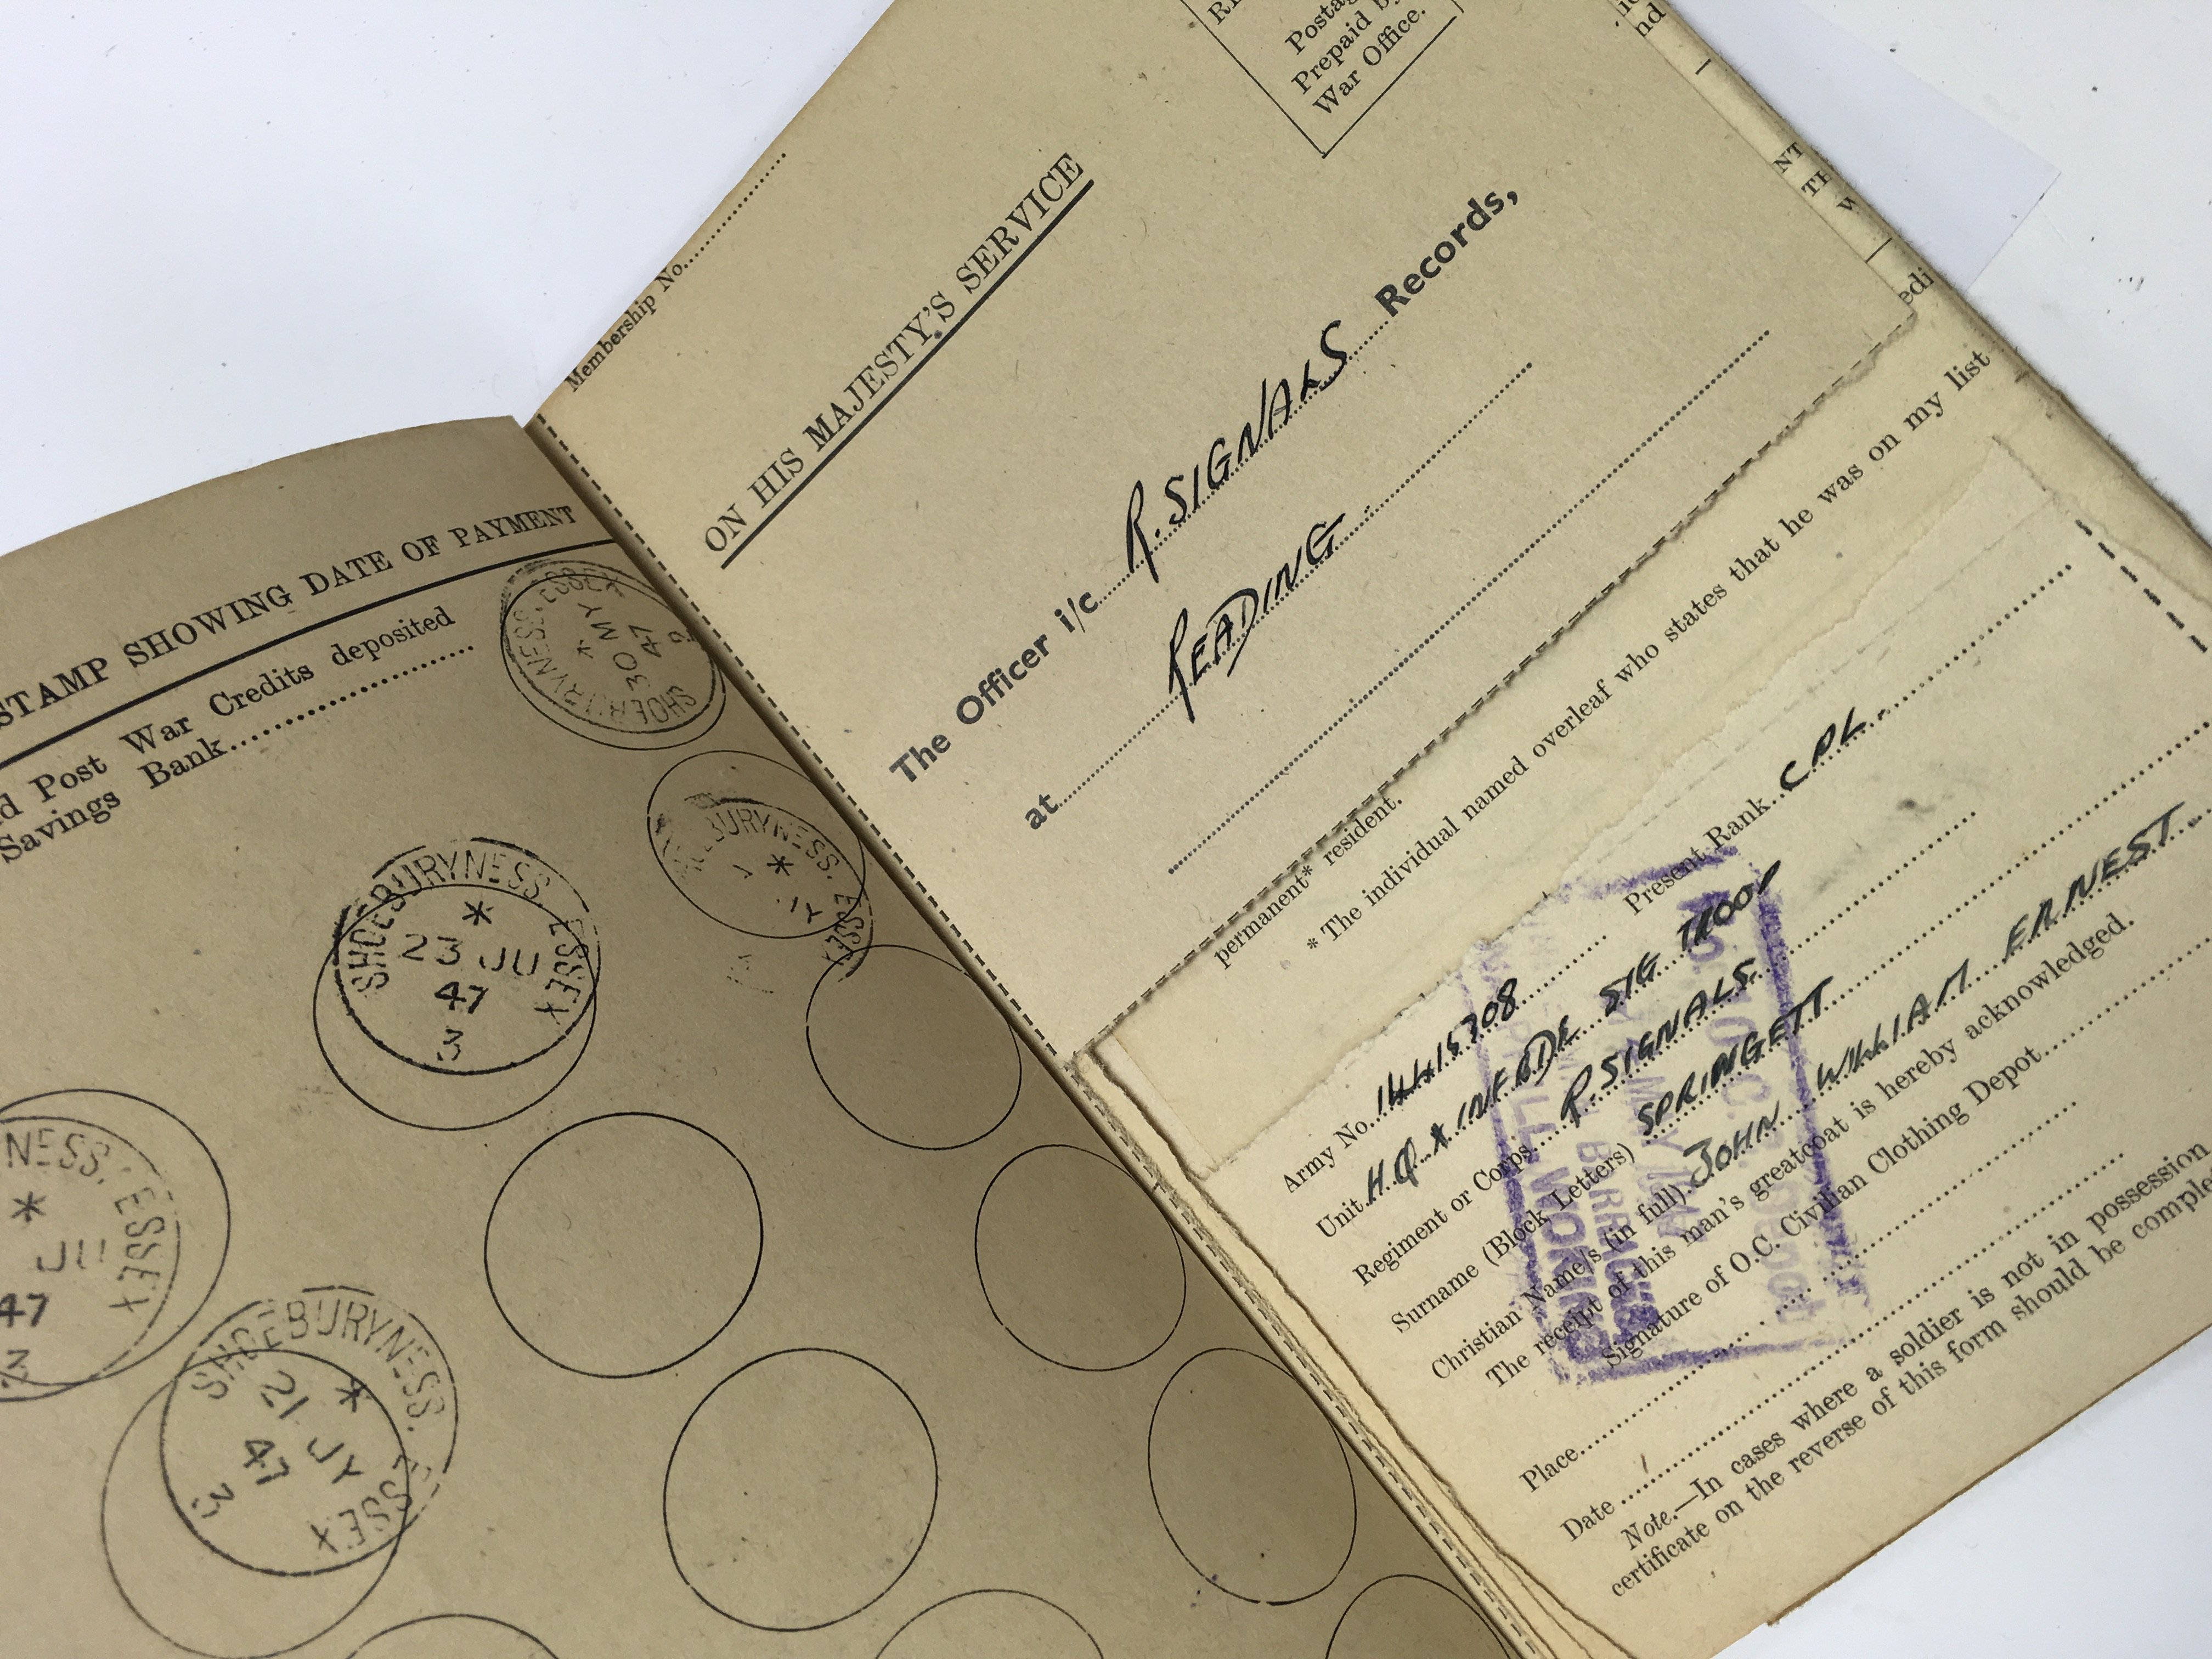 STAMP SHOWING DATE OF PAYMENT
Post War Credits deposited
Savings Bank
SHOEBURYNESS. ESSEX
30 MY
47
SHOEBURYNESS. ESSEX
23 JU
47
3
BURYNESS. ESSEX
JY
NESS. ESSEX
JU
47
3
SHOEBURYNESS. ESSEX
21 JY
47
3
Membership No.
Postage
Prepaid by
War Office.
ON HIS MAJESTY'S SERVICE
The Officer i/c R. SIGNALS Records,
at READING
permanent* resident.
* The individual named overleaf who states that he was on my list
Army No. 14415708 Present Rank CPL.
Unit H.Q. INF BDE SIG TROOP
Regiment or Corps R. SIGNALS.
Surname (Block Letters) SPRINGETT
Christian Name/s (in full) JOHN WILLIAM ERNEST
The receipt of this man's greatcoat is hereby acknowledged.
Signature of O.C. Civilian Clothing Depot
Place
Date
Note.—In cases where a soldier is not in possession
certificate on the reverse of this form should be comple